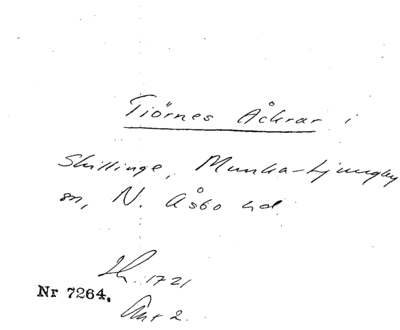 Tiörnes Åckrar i
Skillinge, Munka-Ljungby
sn, N. Åsbo hd.
1721
Nr 7264.